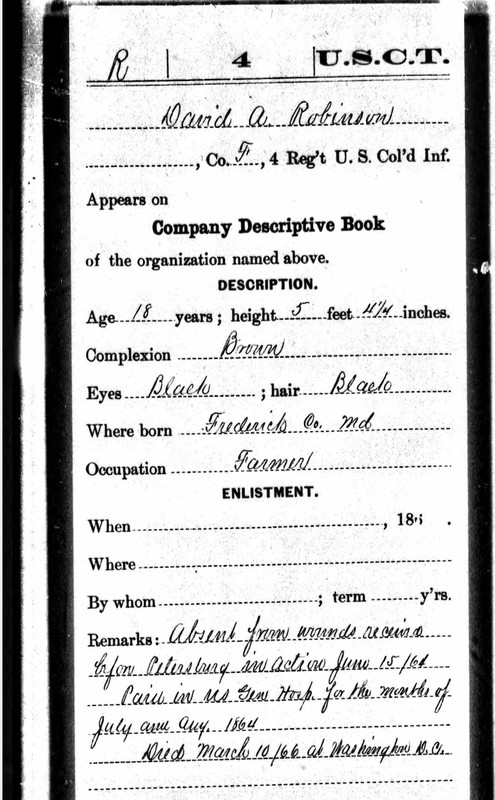 R 4 U.S.C.T.
David A. Robinson
, Co. F, 4 Reg't U. S. Col'd Inf.
Appears on
Company Descriptive Book
of the organization named above.
DESCRIPTION.
Age 18 years; height 5 feet 4 1/4 inches.
Complexion Brown
Eyes Black ; hair Black
Where born Frederick Co. Md
Occupation Farmer
ENLISTMENT.
When , 186 .
Where
By whom ; term y'rs.
Remarks: Absent from wounds received
before Petersburg in action June 15/64
Paid in US Gen Hosp. for the months of
July and Aug. 1864
Died March 10/66 at Washington D.C.